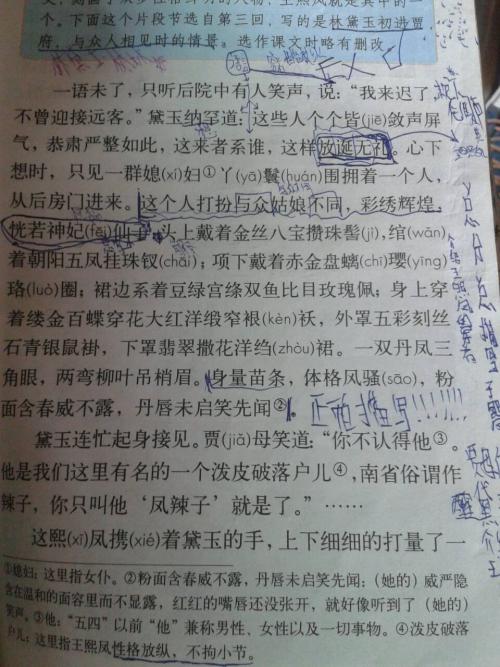 下面这个片段节选自第三回，写的是林黛玉初进贾
府，与众人相见时的情景。选作课文时略有删改。
一语未了，只听后院中有人笑声，说：“我来迟了，
不曾迎接远客。”黛玉纳罕道：“这些人个个皆(jiē)敛声屏
气，恭肃严整如此，这来者系谁，这样放诞无礼。”心下
想时，只见一群媳(xí)妇①丫(yā)鬟(huán)围拥着一个人，
从后房门进来。这个人打扮与众姑娘不同，彩绣辉煌，
恍若神妃(fēi)仙子。头上戴着金丝八宝攒珠髻(jì)，绾(wǎn)
着朝阳五凤挂珠钗(chāi)；项下戴着赤金盘螭(chī)璎(yīng)
珞(luò)圈；裙边系着豆绿宫绦双鱼比目玫瑰佩；身上穿
着缕金百蝶穿花大红洋缎窄裉(kèn)袄，外罩五彩刻丝
石青银鼠褂，下罩翡翠撒花洋绉(zhòu)裙。一双丹凤三
角眼，两弯柳叶吊梢眉。身量苗条，体格风骚(sāo)，粉
面含春威不露，丹唇未启笑先闻②。正面描写!!!!!!!
黛玉连忙起身接见。贾(jiǎ)母笑道：“你不认得他③。
他是我们这里有名的一个泼皮破落户儿④，南省俗谓作
辣子，你只叫他‘凤辣子’就是了。”……
这熙(xī)凤携(xié)着黛玉的手，上下细细的打量了一
①媳妇：这里指女仆。②粉面含春威不露，丹唇未启笑先闻：(她的)威严隐
含在温和的面容里而不显露，红红的嘴唇还没张开，就好像听到了(她的)
笑声。③他：“五四”以前“他”兼称男性、女性以及一切事物。④泼皮破落
户儿：这里指王熙凤性格放纵，不拘小节。